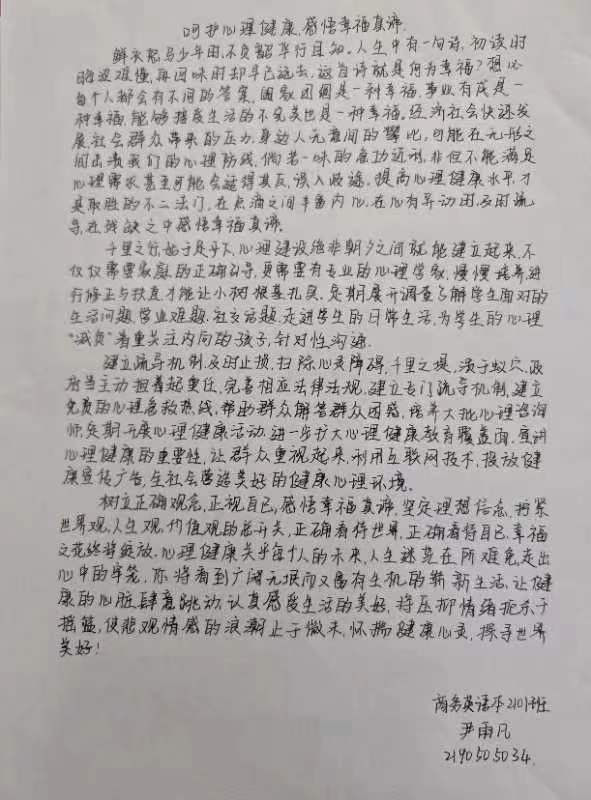 呵护心理健康,感悟幸福真谛.
鲜衣怒马少年时,不负韶华行且知。人生中有一句诗,初读时
晦涩难懂,再回味时却早已远去,这首诗就是何为幸福?想必
每个人都会有不同的答案,阖家团圆是一种幸福,事业有成是一
种幸福,能够接受生活的不完美也是一种幸福。经济社会快速发
展社会群众带来的压力,身边人无意间的攀比,可能在无形之
间击溃我们的心理防线,倘若一味的急功近利,非但不能满足
心理需求甚至可能会适得其反,误入歧途,提高心理健康水平,才
是取胜的不二法门,在点滴之间丰富内心,在心有异动时,及时疏
导,在残缺之中感悟幸福真谛。
千里之行,始于足下,心理建设绝非朝夕之间就能建立起来,不
仅仅需要家庭的正确引导,更需要有专业的心理学家,慢慢培养进
行修正与扶直才能让小树根基扎实,定期展开调查了解学生面对的
生活问题,学业难题,社交话题,走进学生的日常生活,为学生的心理
“减负”着重关注内向的孩子,针对性沟通.
建立疏导机制,及时止损,扫除心灵障碍,千里之堤,溃于蚁穴,政
府当主动担着起责任,完善相应法律法规,建立专门疏导机制,建立
免费的心理急救热线,帮助群众解答群众困惑,培养大批心理咨询
师,定期开展心理健康活动,进一步扩大心理健康教育覆盖面,宣讲
心理健康的重要性,让群众重视起来,利用互联网技术,投放健
康宣传广告,在社会营造美好的健康心理环境.
树立正确观念,正视自己,感悟幸福真谛,坚定理想信念,拧紧
世界观,人生观,价值观的总开关,正确看待世界,正确看待自己,幸福
之花终将绽放,心理健康关乎每个人的未来,人生迷茫在所难免,走出
心中的牢笼,你将看到广阔无垠而又富有生机的崭新生活,让健
康的心脏肆意跳动,认真感受生活的美好,将压抑情绪扼杀于
摇篮,使悲观情感的浪潮止于微末,怀揣健康心灵,探寻世界
美好!
商务英语本2101班
尹雨凡
2190505034.